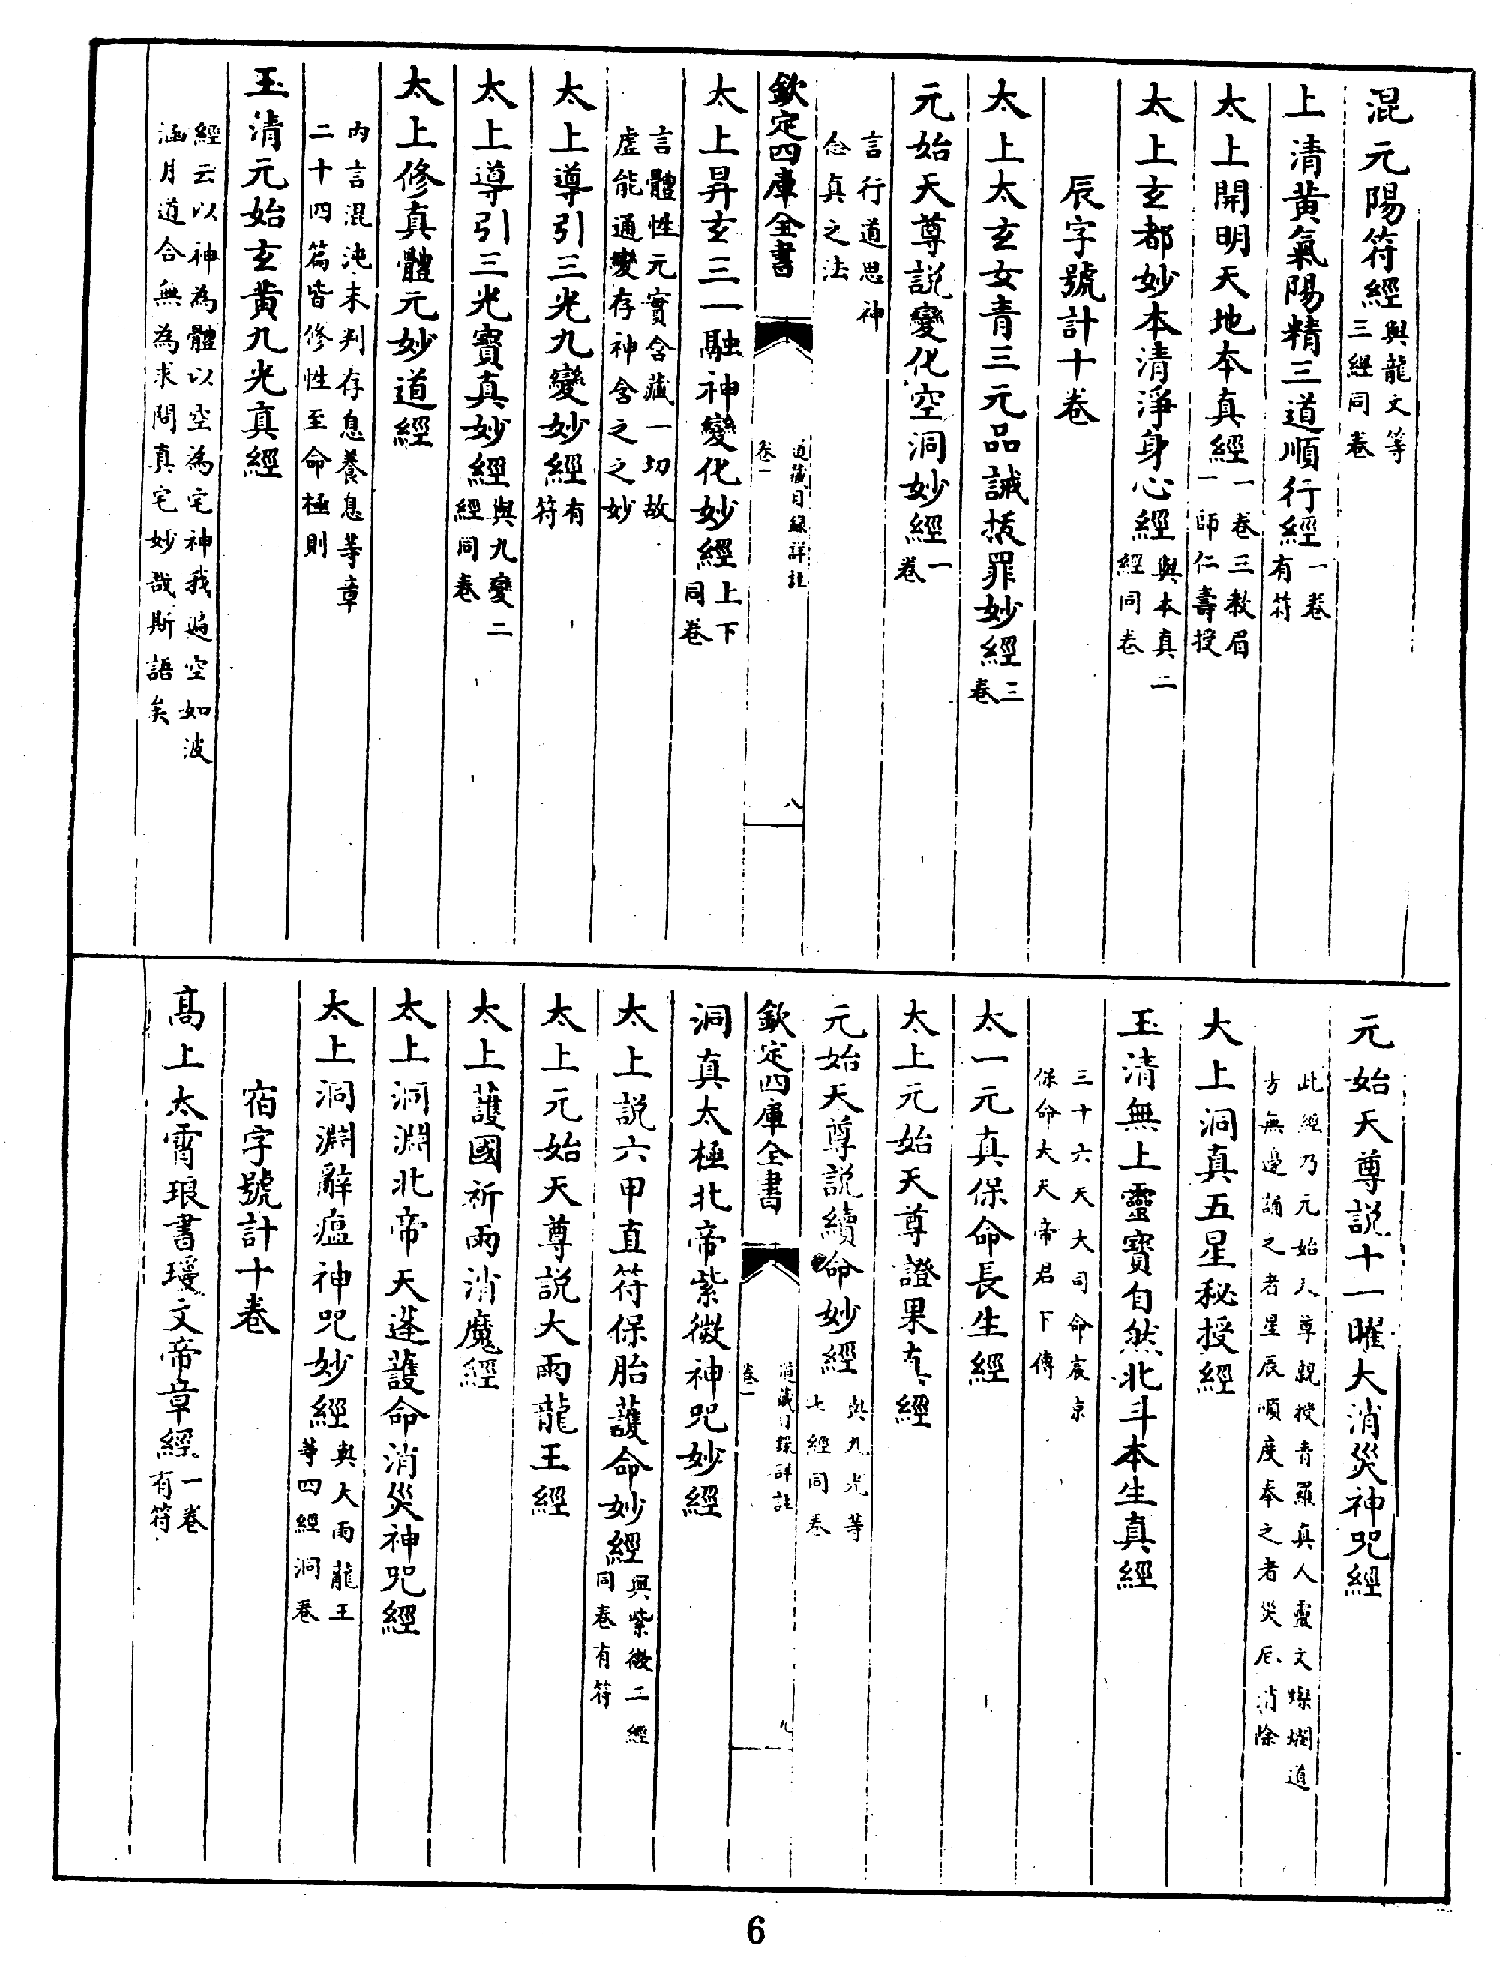 混元陽符經與龍文等三經同卷
上清黃氣陽精三道順行經一卷有符
太上開明天地本真經一卷三教眉一師仁壽授
太上玄都妙本清淨身心經與本真二經同卷
辰字號計十卷
太上太玄女青三元品誡拔罪妙經三卷
元始天尊説變化空洞妙經一卷
言行道思神念真之法
欽定四庫全書
道藏目録詳註
卷一
八
太上昇玄三一融神變化妙經上下同卷
言體性元實含藏一切故虛能通變存神含之之妙
太上導引三光九變妙經有符
太上導引三光寶真妙經與九變二經同卷
太上修真體元妙道經
内言混沌未判存息養息等章二十四篇皆修性至命極則
玉清元始玄黃九光真經
經云以神為體以空為宅神我遍空如波涵月道合無為求問真宅妙哉斯語矣
元始天尊説十一曜大消災神咒經
此經乃元始天尊親授青羅真人靈文燦爛道方無邊誦之者星辰順度奉之者災厄消除
大上洞真五星秘授經
玉清無上靈寶自然北斗本生真經
三十六天大司命哀京保命大天帝君下傳
太一元真保命長生經
太上元始天尊證果真經
元始天尊説續命妙經與九光等七經同卷
欽定四庫全書
道藏目録詳註
卷一
九
洞真太極北帝紫微神咒妙經
太上説六甲直符保胎護命妙經與紫微二經同卷有符
太上元始天尊説大雨龍王經
太上護國祈雨消魔經
太上洞淵北帝天蓬護命消災神咒經
太上洞淵辭瘟神咒妙經與大雨龍王等四經洞卷
宿字號計十卷
高上太霄琅書瓊文帝章經一卷有符
6